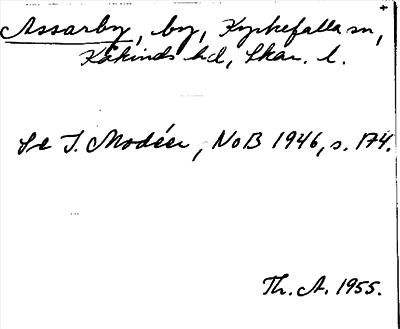 Assarby, by, Kyrkefalla sn,
Kåkinds hd, Skar. l.
Se I. Modéer, NoB 1946, s. 174.
Th. A. 1955.